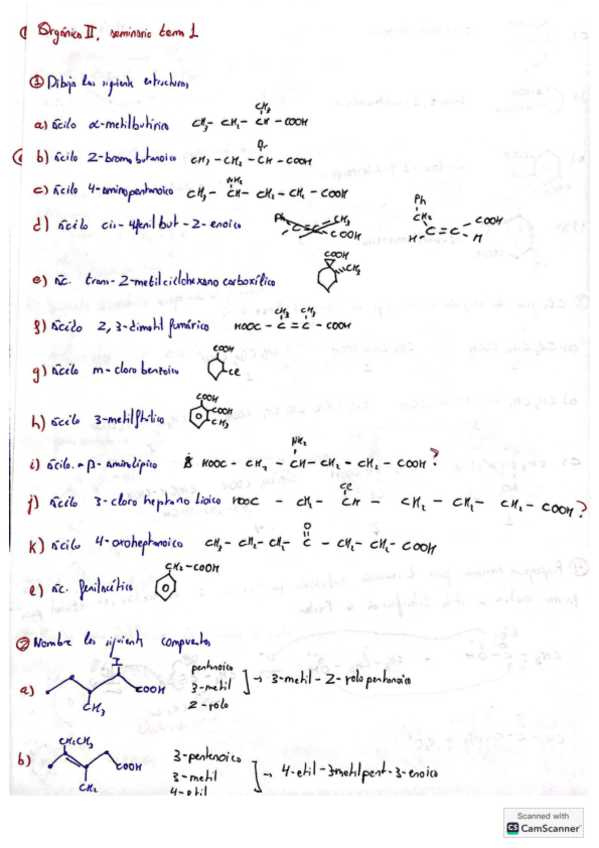 Orgánica II, seminario tema 1
① Dibuja las siguient estructuras
a) ácido α-metilbutírico CH3- CH2- CH - COOH
CH3
b) ácido 2-bromobutanoico CH3 - CH2 - CH - COOH
Br
c) ácido 4-aminopentanoico CH3 - CH - CH2 - CH2 - COOH
NH2
d) ácido cis-4fenil but-2-enoico
Ph C=C CH3 COOH
Ph CH2 H C=C COOH H
e) ác. trans-2-metilciclohexano carboxílico
COOH
CH3
f) ácido 2,3-dimetil fumárico HOOC - C = C - COOH
CH3 CH3
g) ácido m-cloro benzoico
COOH
Cl
h) ácido 3-metilftálico
COOH
COOH
CH3
i) ácido β-aminoadípico HOOC - CH2 - CH - CH2 - CH2 - COOH?
NH2
j) ácido 3-cloro heptano dioico HOOC - CH2 - CH - CH2 - CH2 - CH2 - COOH?
Cl
k) ácido 4-oxoheptanoico CH3- CH2- CH2- C - CH2- CH2- COOH
O
l) ác. fenilacético
CH2-COOH
② Nombre los siguient compuestos
a)
I
COOH
CH3
pentanoico
3-metil
2-yodo
→ 3-metil-2-yodo pentanoico
b)
CH2CH3
COOH
CH3
3-pentenoico
3-metil
4-etil
→ 4-etil-3metilpent-3-enoico
Scanned with
CS CamScanner